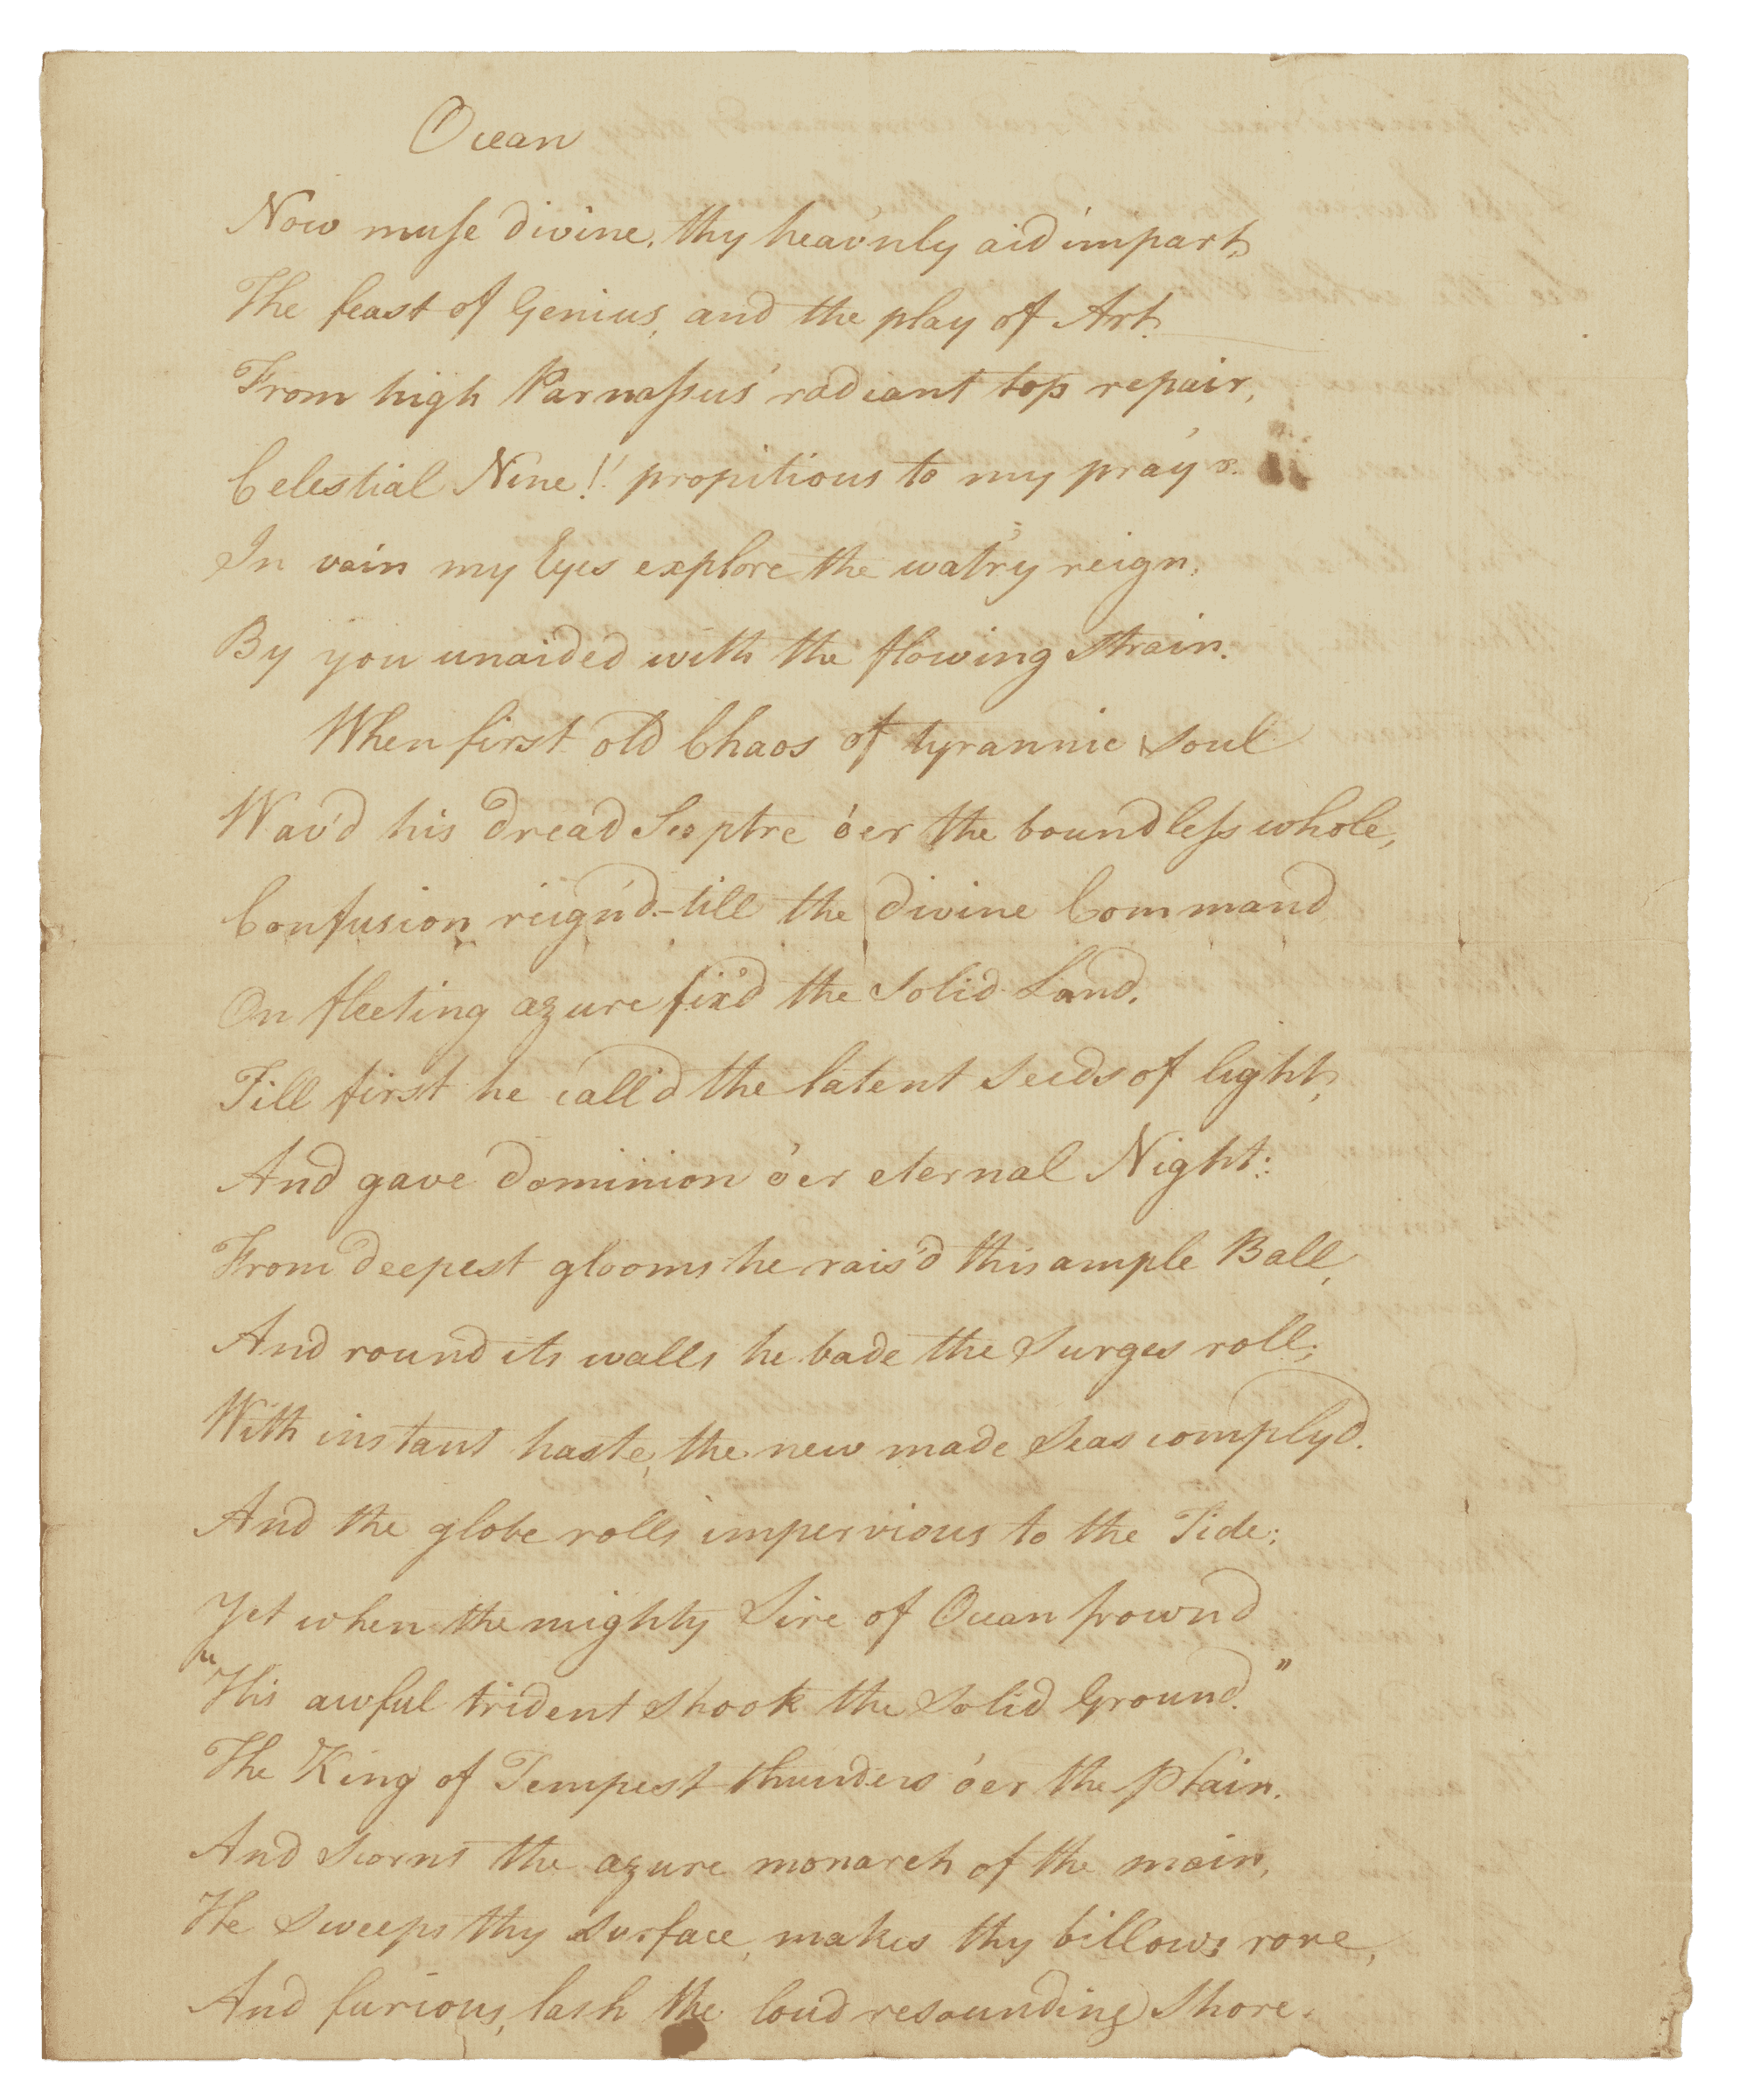 Ocean
Now muſe divine, thy heav'nly aid impart,
The feast of Genius, and the play of Art.
From high Parnaſsus' radiant top repair,
Celestial Nine! propitious to my pray'r.
In vain my Eyes explore the wat'ry reign,
By you unaided with the flowing strain.
When first old Chaos of tyrannic soul
Wav'd his dread Sceptre o'er the boundleſs whole,
Confusion reign'd-till the divine Command
On fleeting azure fix'd the Solid Land,
Till first he call'd the latent seeds of light,
And gave dominion o'er eternal Night:
From deepest glooms he rais'd this ample Ball,
And round its walls he bade the surges roll;
With instant haste, the new made seas comply'd.
And the globe rolls impervious to the Tide;
Yet when the mighty Sire of Ocean frown'd
"His awful trident shook the solid Ground."
The King of Tempest thunders o'er the plain.
And scorns the azure monarch of the main,
He sweeps thy surface, makes thy billows rore,
And furious, lash the loud resounding shore.